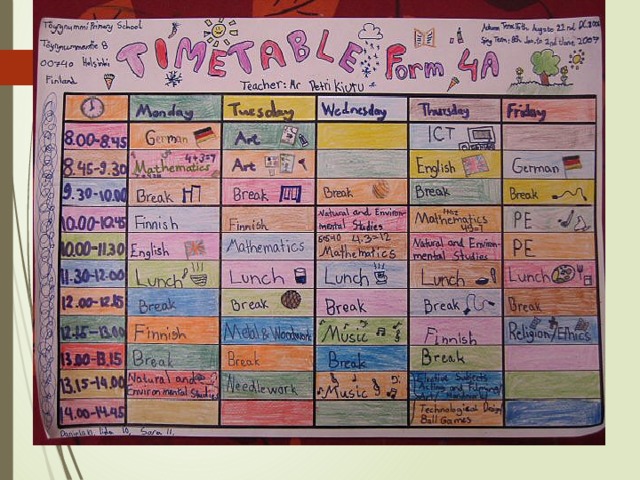 Primary School
8
00740 Helsinki
Finland
TIMETABLE Form 4A
2007
Teacher: Mr Petri
Monday Tuesday Wednesday Thursday Friday
8.00-8.45 German Art ICT
8.45-9.30 Mathematics 4+3=7 Art English German
9.30-10.00 Break Break Break Break Break
10.00-10.45 Finnish Finnish Natural and Environ-
mental Studies Mathematics PE
10.00-11.30 English Mathematics 4.3=12
Mathematics Natural and Environ-
mental Studies PE
11.30-12.00 Lunch Lunch Lunch Lunch Lunch
12.00-12.15 Break Break Break Break Break
12.15-13.00 Finnish Metal & Woodwork Music Finnish Religion/Ethics
13.00-13.15 Break Break Break Break
13.15-14.00 Natural and
Environmental Studies Needlework Music Subjects
14.00-14.45 Technological Design
Ball Games
Sara 11,